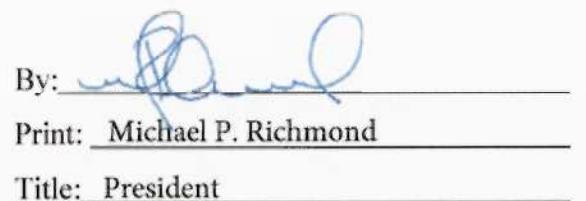 By:
Print: Michael P. Richmond
Title: President